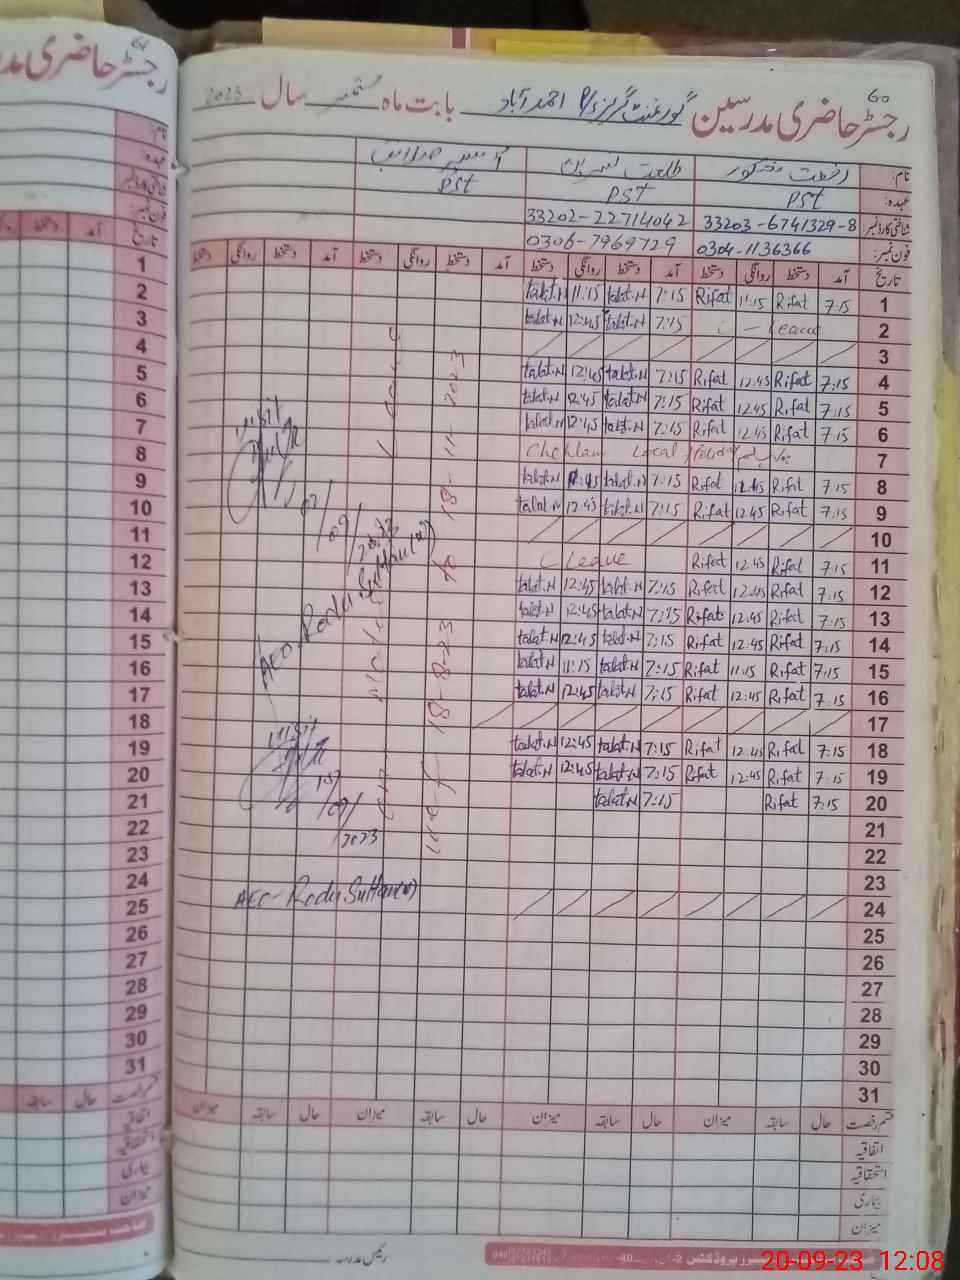 60
رجسٹر حاضری مدرسین گورنمنٹ گرلز P/S احمد آباد بابت ماہ ستمبر سال 2023
نام: رفعت طلعت نسرین
عہدہ: PST PST PST
شناختی کارڈ نمبر: 33203-6741329-8 33202-22714042
فون نمبر: 0304-1136366 0306-7969729
تاریخ آمد دستخط روانگی دستخط آمد دستخط روانگی دستخط آمد دستخط روانگی دستخط آمد دستخط روانگی دستخط
1 7:15 Rifat 11:15 Rifat 7:15 talat.N 11:15 talat.N
2 C - Leave 7:15 talat.N 12:45 talat.N
3
4 7:15 Rifat 12:45 Rifat 7:15 talat.N 12:45 talat.N
5 7:15 Rifat 12:45 Rifat 7:15 talat.N 12:45 talat.N
6 7:15 Rifat 12:45 Rifat 7:15 talat.N 12:45 talat.N
7 Chehlam Local Holiday
8 7:15 Rifat 12:45 Rifat 7:15 talat.N 12:45 talat.N
9 7:15 Rifat 12:45 Rifat 7:15 talat.N 12:45 talat.N
10
11 7:15 Rifat 12:45 Rifat C Leave
12 7:15 Rifat 12:45 Rifat 7:15 talat.N 12:45 talat.N
13 7:15 Rifat 12:45 Rifat 7:15 talat.N 12:45 talat.N
14 7:15 Rifat 12:45 Rifat 7:15 talat.N 12:45 talat.N
15 7:15 Rifat 11:15 Rifat 7:15 talat.N 11:15 talat.N
16 7:15 Rifat 12:45 Rifat 7:15 talat.N 12:45 talat.N
17
18 7:15 Rifat 12:45 Rifat 7:15 talat.N 12:45 talat.N
19 7:15 Rifat 12:45 Rifat 7:15 talat.N 12:45 talat.N
20 7:15 Rifat 7:15 talat.N
21
22
23
24
25
26
27
28
29
30
31
Leave
w.e.f 18-8-23 to 18-11-2023
visit
07/09/2023
AEO-Rodu Sultan(w)
visit
15/09/2023
AEO-Rodu Sultan(w)
قسم رخصت حال سابقہ میزان حال سابقہ میزان حال سابقہ میزان حال سابقہ میزان
اتفاقیہ
استحقاقیہ
بیماری
میزان
رئیس مدرسہ
رجسٹر حاضری
نام:
عہدہ:
شناختی کارڈ نمبر:
فون نمبر:
تاریخ آمد دستخط
1
2
3
4
5
6
7
8
9
10
11
12
13
14
15
16
17
18
19
20
21
22
23
24
25
26
27
28
29
30
31
قسم رخصت حال سابقہ
اتفاقیہ
استحقاقیہ
بیماری
میزان
20-09-23 12:08